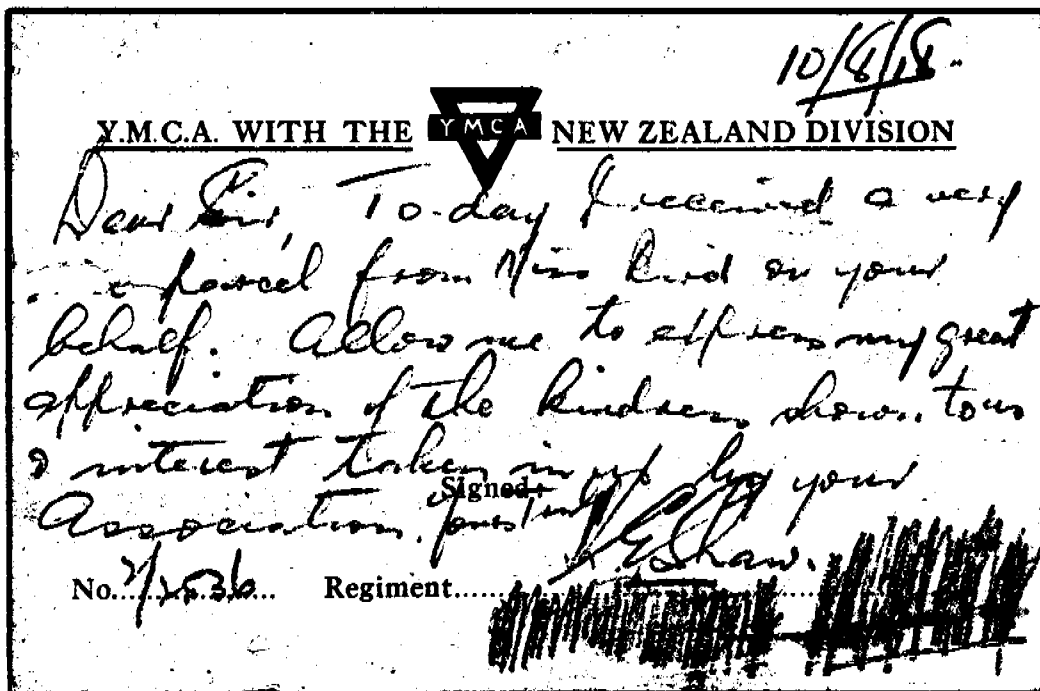 10/8/18.
Y.M.C.A. WITH THE YMCA NEW ZEALAND DIVISION
Dear Sir, To-day I received a very
parcel from Miss on your
behalf. Allow me to express my great
appreciation of the kindness shown to us
& interest taken in us by your
Signed:
Association.
Shaw.
No. 2/2536 Regiment